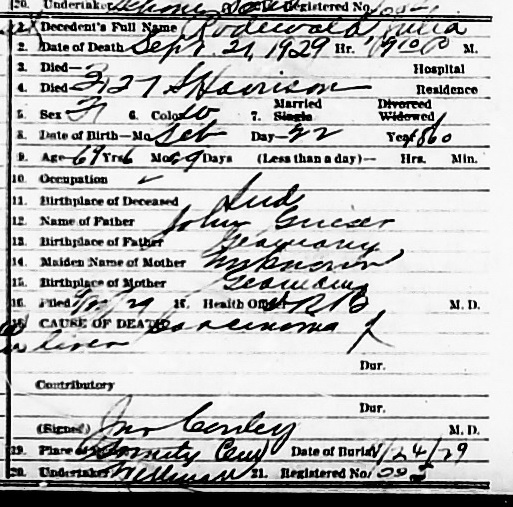 20. Undertaker Registered No.
1. Decedent's Full Name Rodewald Julia
2. Date of Death Sept. 21, 1929 Hr. 1910 P M.
3. Died— Hospital
4. Died 2127 S Harrison Residence
5. Sex F 6. Color W 7. Married Single Divorced Widowed
8. Date of Birth—Mo. Feb Day—22 Year 1860
9. Age—69 Yrs 6 Mos. 29 Days (Less than a day)— Hrs. Min.
10. Occupation
11. Birthplace of Deceased Ind
12. Name of Father John
13. Birthplace of Father Germany
14. Maiden Name of Mother Unknown
15. Birthplace of Mother Germany
16. Filed 29 17. Health Officer M. D.
18. CAUSE OF DEATH Carcinoma of
liver
Dur.
Contributory
Dur.
(Signed) Jno Conley M. D.
19. Place of Trinity Cem Date of Burial 9/24/29
20. Undertaker Wellman 21. Registered No.